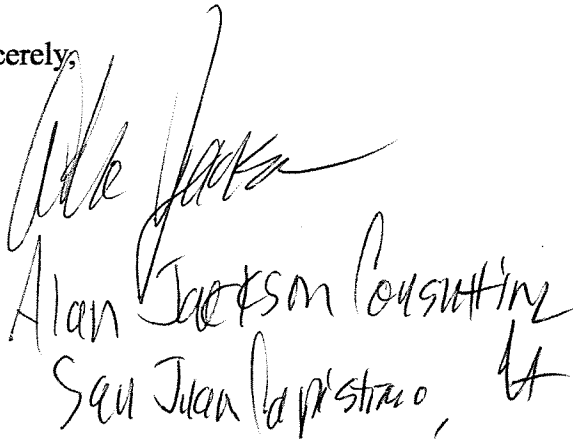 cerely,
Jackson
Alan Jackson Consulting
San Juan Capistrano, CA